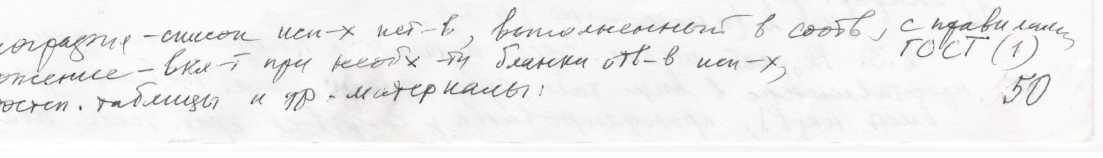 ография - список исп-х ист-в, выполненный в соотв, с правилами
ГОСТ (1)
ожение - вкл-т при необх-ти бланки отв-в исп-х,
таблицы и др. материалы:
50